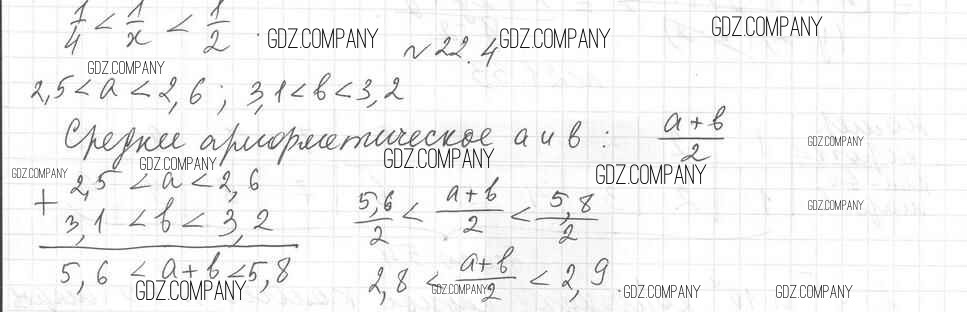 1/4 < 1/x < 1/2 .
GDZ.COMPANY
№ 22.4
GDZ.COMPANY
GDZ.COMPANY
GDZ.COMPANY
2,5 < a < 2,6 ; 3,1 < b < 3,2
Среднее арифметическое a и b : (a+b)/2
GDZ.COMPANY
GDZ.COMPANY
GDZ.COMPANY
GDZ.COMPANY
GDZ.COMPANY
+ 2,5 < a < 2,6
3,1 < b < 3,2
5,6 < a+b < 5,8
5,6/2 < (a+b)/2 < 5,8/2
GDZ.COMPANY
2,8 < (a+b)/2 < 2,9 .
GDZ.COMPANY
GDZ.COMPANY
GDZ.COMPANY
GDZ.COMPANY